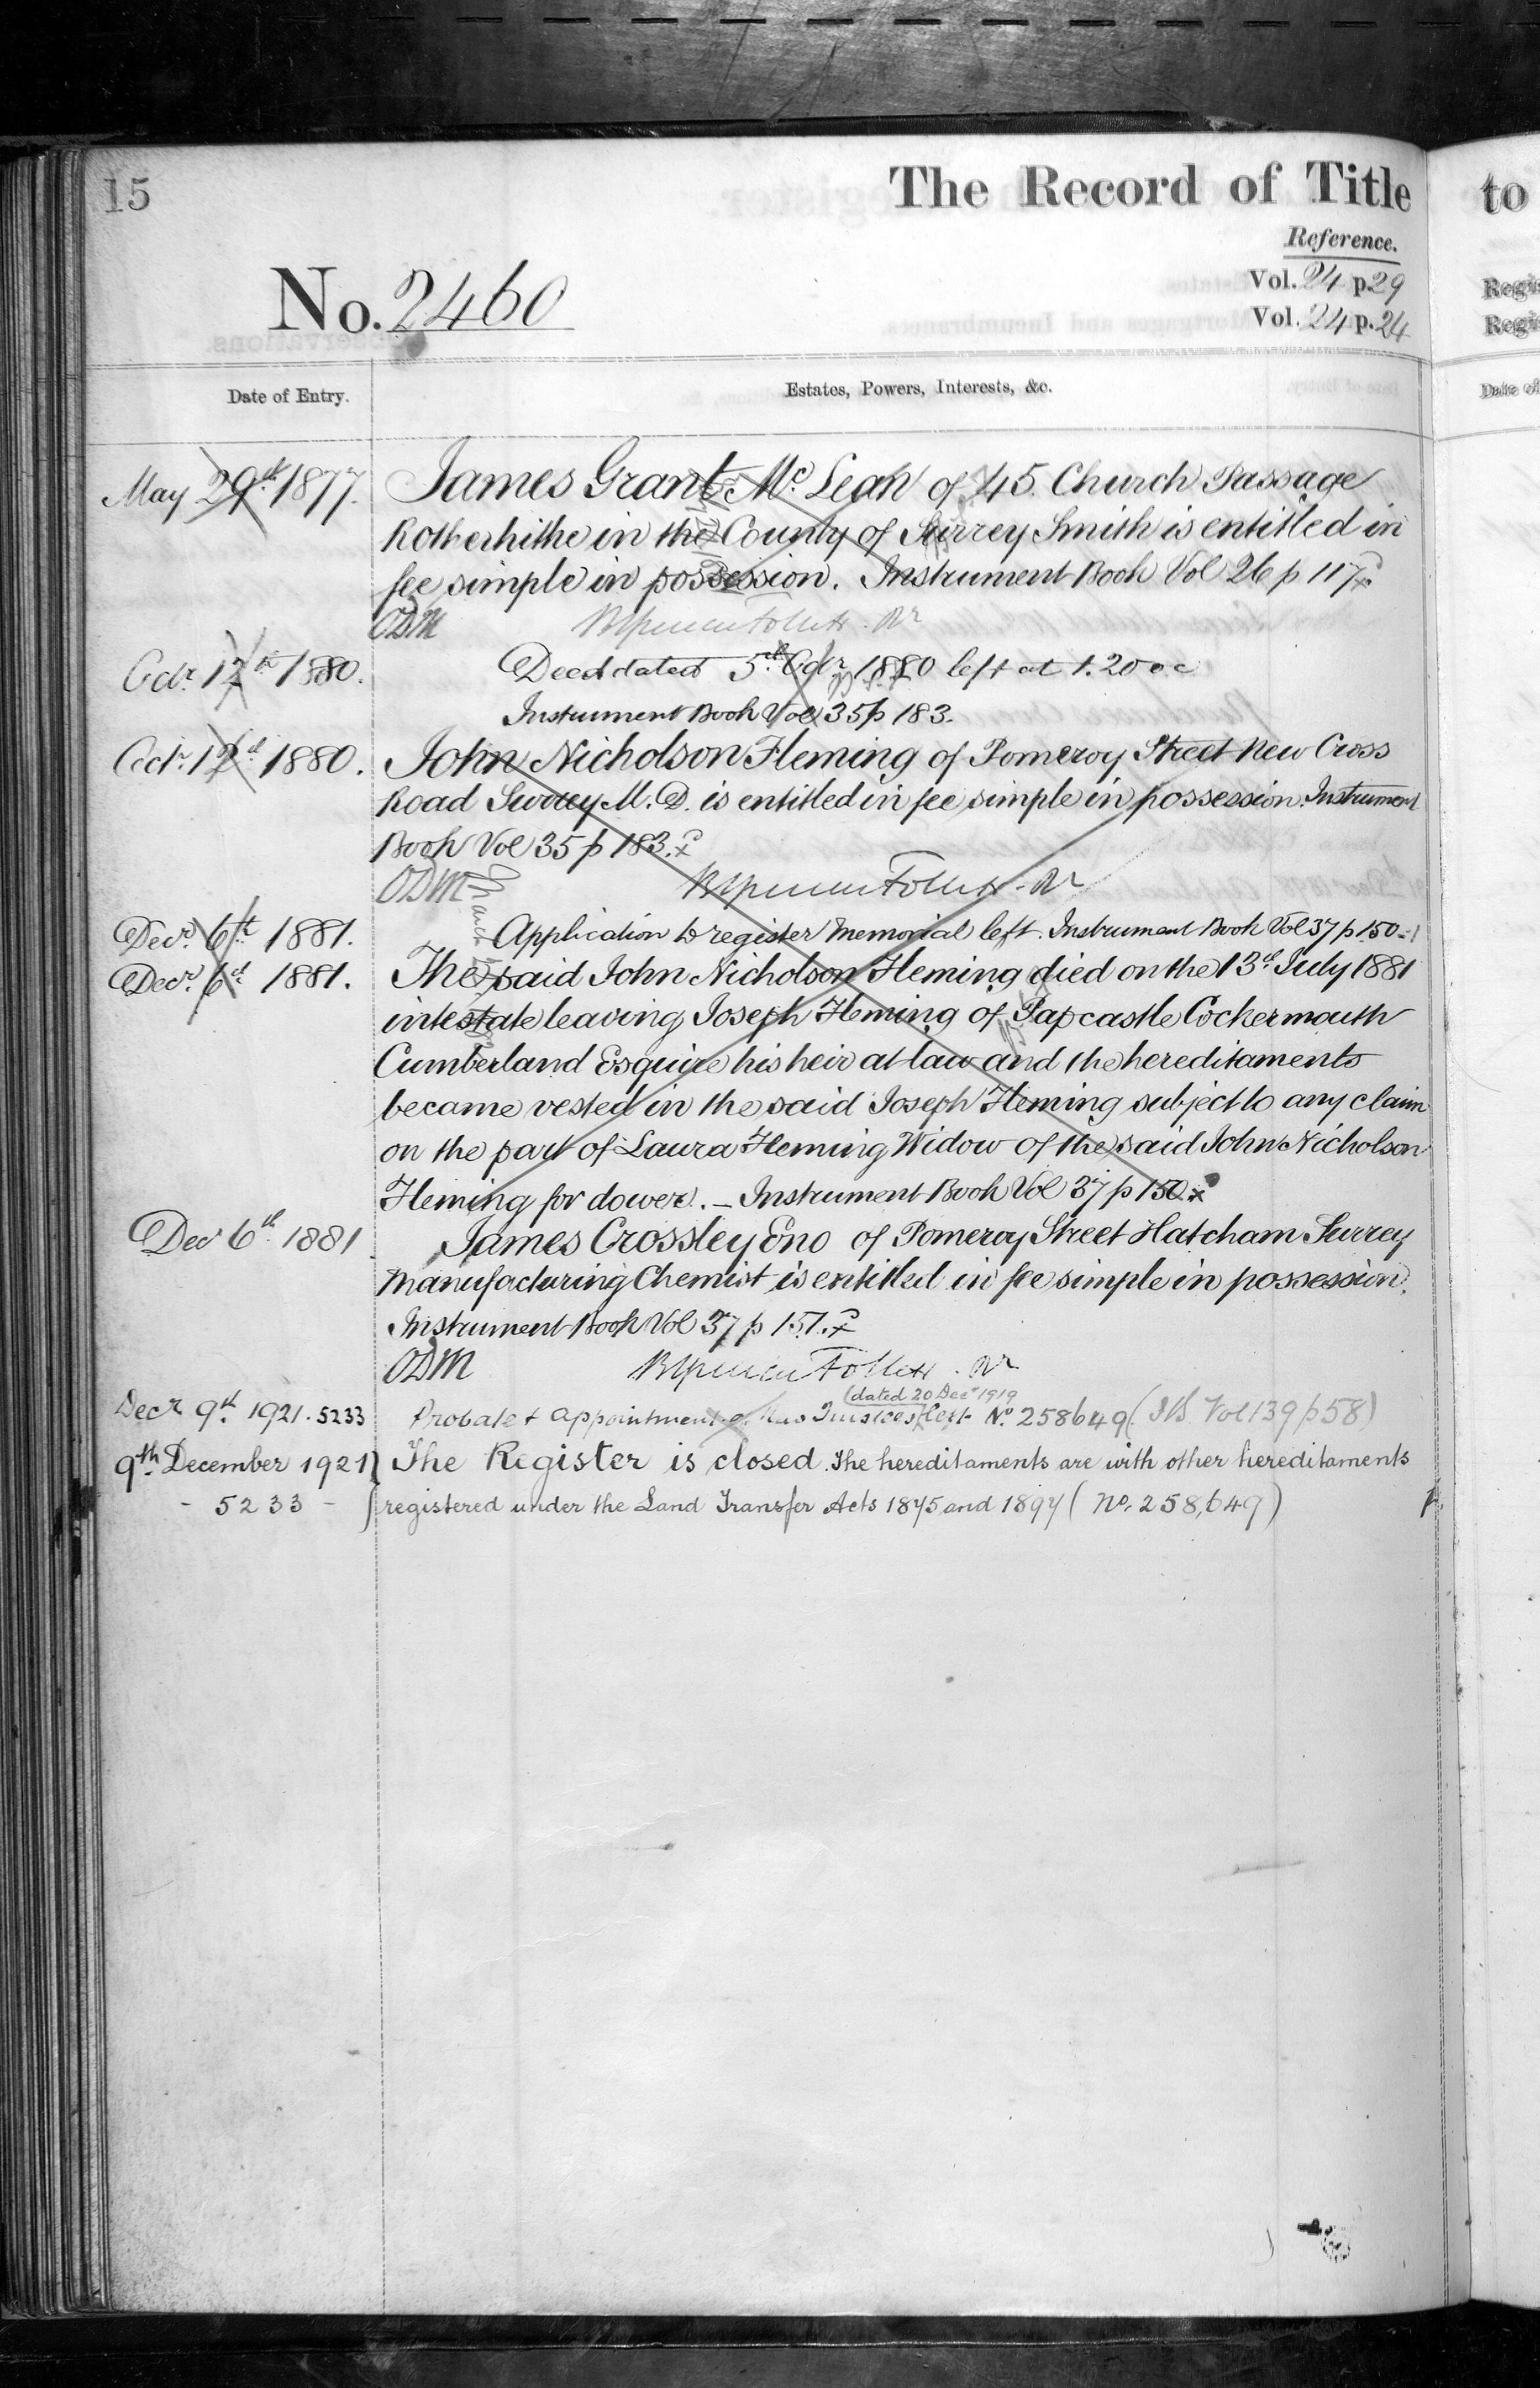 15
The Record of Title
to
Reference.
No. 2460
Vol. 24 p. 29
Vol. 24 p. 24
Regis
Regi
Date of Entry.
Estates, Powers, Interests, &c.
Date of
May 29th 1877. James Grant Mc Lean of 45 Church Passage
Rotherhithe in the County of Surrey Smith is entitled in
fee simple in possession. Instrument Book Vol 26 p 117
ODM
Octr. 12th 1880. Deed dated 5th Octr 1880 left at 1.20 o c
Instrument Book Vol 35 p 183.
Octr. 12th 1880. John Nicholson Fleming of Pomeroy Street New Cross
Road Surrey M.D. is entitled in fee simple in possession. Instrument
Book Vol 35 p 183.
ODM
Decr. 6th 1881. Application to register memorial left. Instrument Book Vol 37 p 150
Decr. 6th 1881. The said John Nicholson Fleming died on the 13th July 1881
intestate leaving Joseph Fleming of Papcastle Cockermouth
Cumberland Esquire his heir at law and the hereditaments
became vested in the said Joseph Fleming subject to any claim
on the part of Laura Fleming Widow of the said John Nicholson
Fleming for dower. – Instrument Book Vol 37 p 150
Decr 6th 1881 James Crossley Eno of Pomeroy Street Hatcham Surrey
Manufacturing Chemist is entitled in fee simple in possession.
Instrument Book Vol 37 p 151.
ODM
(dated 20 Decr 1919
Decr 9th 1921. 5233 Probate & appointment of new Trustees left No 258649 (I B. Vol 139 p 58)
9th December 1921 The Register is closed. The hereditaments are with other hereditaments
- 5233 - registered under the Land Transfer Acts 1875 and 1897 (No. 258,649)